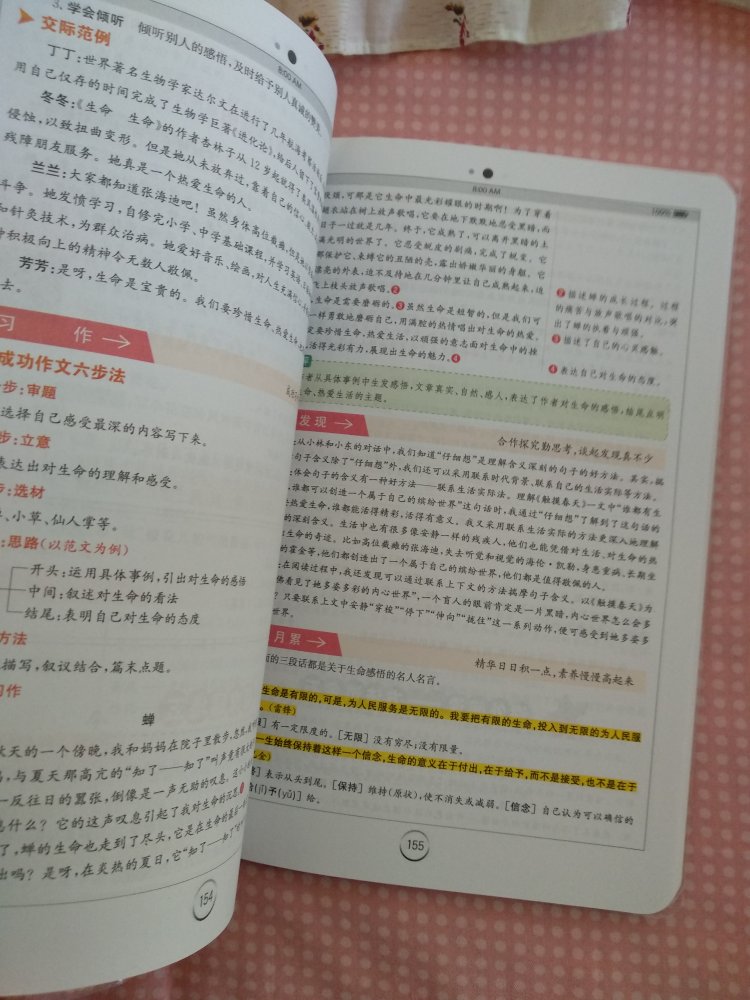 3. 学会倾听 倾听别人的感悟,及时给予别人真诚的赞美
8:00 AM
交际范例
丁丁:世界著名生物学家达尔文在进行了几年
用自己仅存的时间完成了生物学巨著《进化论》,给后人留下了
冬冬:《生命 生命》的作者杏林子从12岁起就得了
侵蚀,以致扭曲变形。但是她从未放弃过,靠着自己的信心
残障朋友服务。她真是一个热爱生命的人。
兰兰:大家都知道张海迪吧!虽然身体高位截瘫,但是
斗争。她发愤学习,自修完小学、中学基础课程,并学习英语、
和针灸技术,为群众治病。她爱好音乐、绘画,对人生充满信心
积极向上的精神令无数人敬佩。
芳芳:是呀,生命是宝贵的。我们要珍惜生命、热爱生命,
去。
习 作
成功作文六步法
步:审题
选择自己感受最深的内容写下来。
步:立意
表达出对生命的理解和感受。
步:选材
、小草、仙人掌等。
:思路(以范文为例)
开头:运用具体事例,引出对生命的感悟
中间:叙述对生命的看法
结尾:表明自己对生命的态度
方法
描写,叙议结合,篇末点题。
习作
蝉
秋天的一个傍晚,我和妈妈在院子里散步,忽然,
,与夏天那高亢的“知了——知了”叫声
一反往日的嚣张,倒像是一声无助的叹息。这
息什么?它的这声叹息引起了我对生命的沉思。
了,蝉的生命也走到了尽头,它是在生命的最后一
出吗?是呀,在炎热的夏日,它“知了——知了”
154
8:00 AM
100%
烦,可那是它生命中最光彩耀眼的时期啊!为了穿着
翅衣站在树上放声歌唱,它要在地下默默地忍受黑暗,而
日子一过就是几年。终于,它成熟了,可以离开黑暗的土
满光明的世界了。它忍受蜕皮的剧痛,完成了蜕变。它
那保护它、束缚它的丑陋的壳,露出娇嫩华丽的身躯。它
漂亮的外表,迫不及待地在几分钟里让自己成熟起来,迫
飞上枝头放声歌唱。❷
生命是需要磨砺的。❸虽然生命是短暂的,但是我们可
一样勇敢地磨砺自己,用满腔的热情唱出对生命的热爱。
定要珍惜生命、热爱生活,以顽强的意志面对生命中的挫
活得光彩有力,展现出生命的魅力。❹
❷描述蝉的成长过程,过程
的痛苦与放声歌唱的对比,突
出了蝉的执着与顽强。
❸描述了自己的心灵感触。
❹表达自己对生命的态度。
者从具体事例中生发感悟,文章真实、自然、感人,表达了作者对生命的感悟,结尾点明
生命、热爱生活的主题。
发现
合作探究勤思考,谈起发现真不少
:从小林和小东的对话中,我们知道“仔细想”是理解含义深刻的句子的好方法。其实,揣
句子含义除了“仔细想”外,我们还可以采用联系时代背景、联系自己的生活实际等方法。
:体会句子的含义有一种好方法——联系生活实际法。理解《触摸春天》一文中“谁都有生
,谁都可以创造一个属于自己的缤纷世界”这句话时,我通过“仔细想”了解到了这句话的
要热爱生命,谁都能活得精彩,活得有意义。我又采用联系生活实际的方法更深入地理解
的深刻含义。生活中也有很多像安静一样的残疾人,他们也能凭借对生活、对生命的热
生命的奇迹。比如高位截瘫的张海迪,失去听觉和视觉的海伦·凯勒,身患重病、长期坐
的霍金等,他们都创造出了一个属于自己的缤纷世界,他们都是值得敬佩的人。
:在阅读过程中,我还发现可以通过联系上下文的方法揣摩句子含义。以《触摸春天》为
佛看见了她多姿多彩的内心世界”,一个盲人的眼前肯定是一片黑暗,内心世界怎么会多
?只要联系上文中安静“穿梭”“停下”“伸向”“拢住”这一系列动作,便可感受到她多姿多
世界。
月累
精华日日积一点,素养慢慢高起来
面的三段话都是关于生命感悟的名人名言。
生命是有限的,可是,为人民服务是无限的。我要把有限的生命,投入到无限的为人民服
。(雷锋)
限]有一定限度的。[无限]没有穷尽;没有限量。
一生始终保持着这样一个信念,生命的意义在于付出,在于给予,而不是接受,也不是在于
金)
]表示从头到尾。[保持]维持(原状),使不消失或减弱。[信念]自己认为可以确信的
(jǐ)予(yǔ)]给。
155